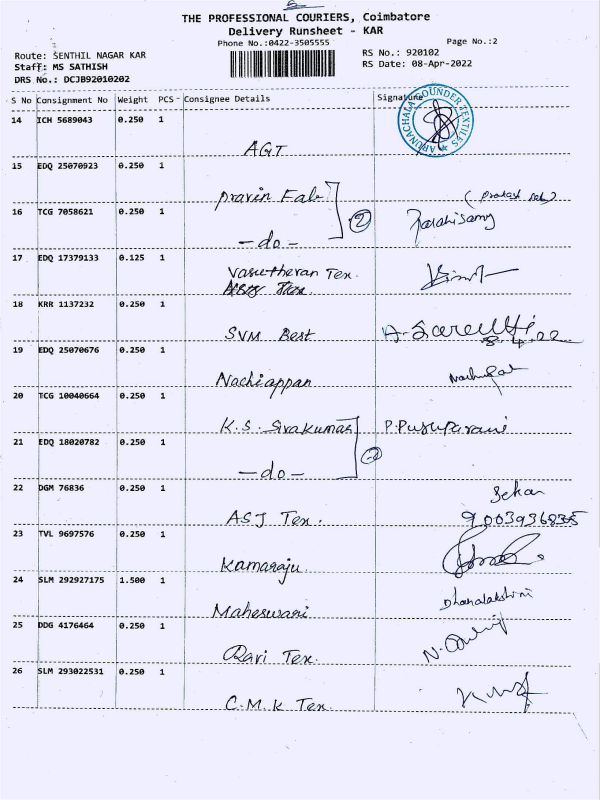 THE PROFESSIONAL COURIERS, Coimbatore
Delivery Runsheet - KAR
Phone No.:0422-3505555
Page No.:2
Route: SENTHIL NAGAR KAR
RS No.: 920102
Staff: MS SATHISH
RS Date: 08-Apr-2022
DRS No.: DCJB92010202
S No Consignment No Weight PCS Consignee Details Signature
14 ICH 5689043 0.250 1
ARUNACHALA GOUNDER TEXTILES
AGT
15 EDQ 25070923 0.250 1
Pravin Fab
16 TCG 7058621 0.250 1
2
- do -
17 EDQ 17379133 0.125 1
Vasutheran Tex.
18 KRR 1137232 0.250 1
SVM Best
8.4.22
19 EDQ 25070676 0.250 1
Nachiappan
20 TCG 10040664 0.250 1
K.S. Sivakumar P.Pushparani
21 EDQ 18020782 0.250 1
2
- do -
22 DGM 76836 0.250 1
Sekar
ASJ Tex.
23 TVL 9697576 0.250 1
Kamaraju.
24 SLM 292927175 1.500 1
Dhanalakshmi
Maheswari
25 DDG 4176464 0.250 1
Ravi Tex.
26 SLM 293022531 0.250 1
C.M.K Tex.